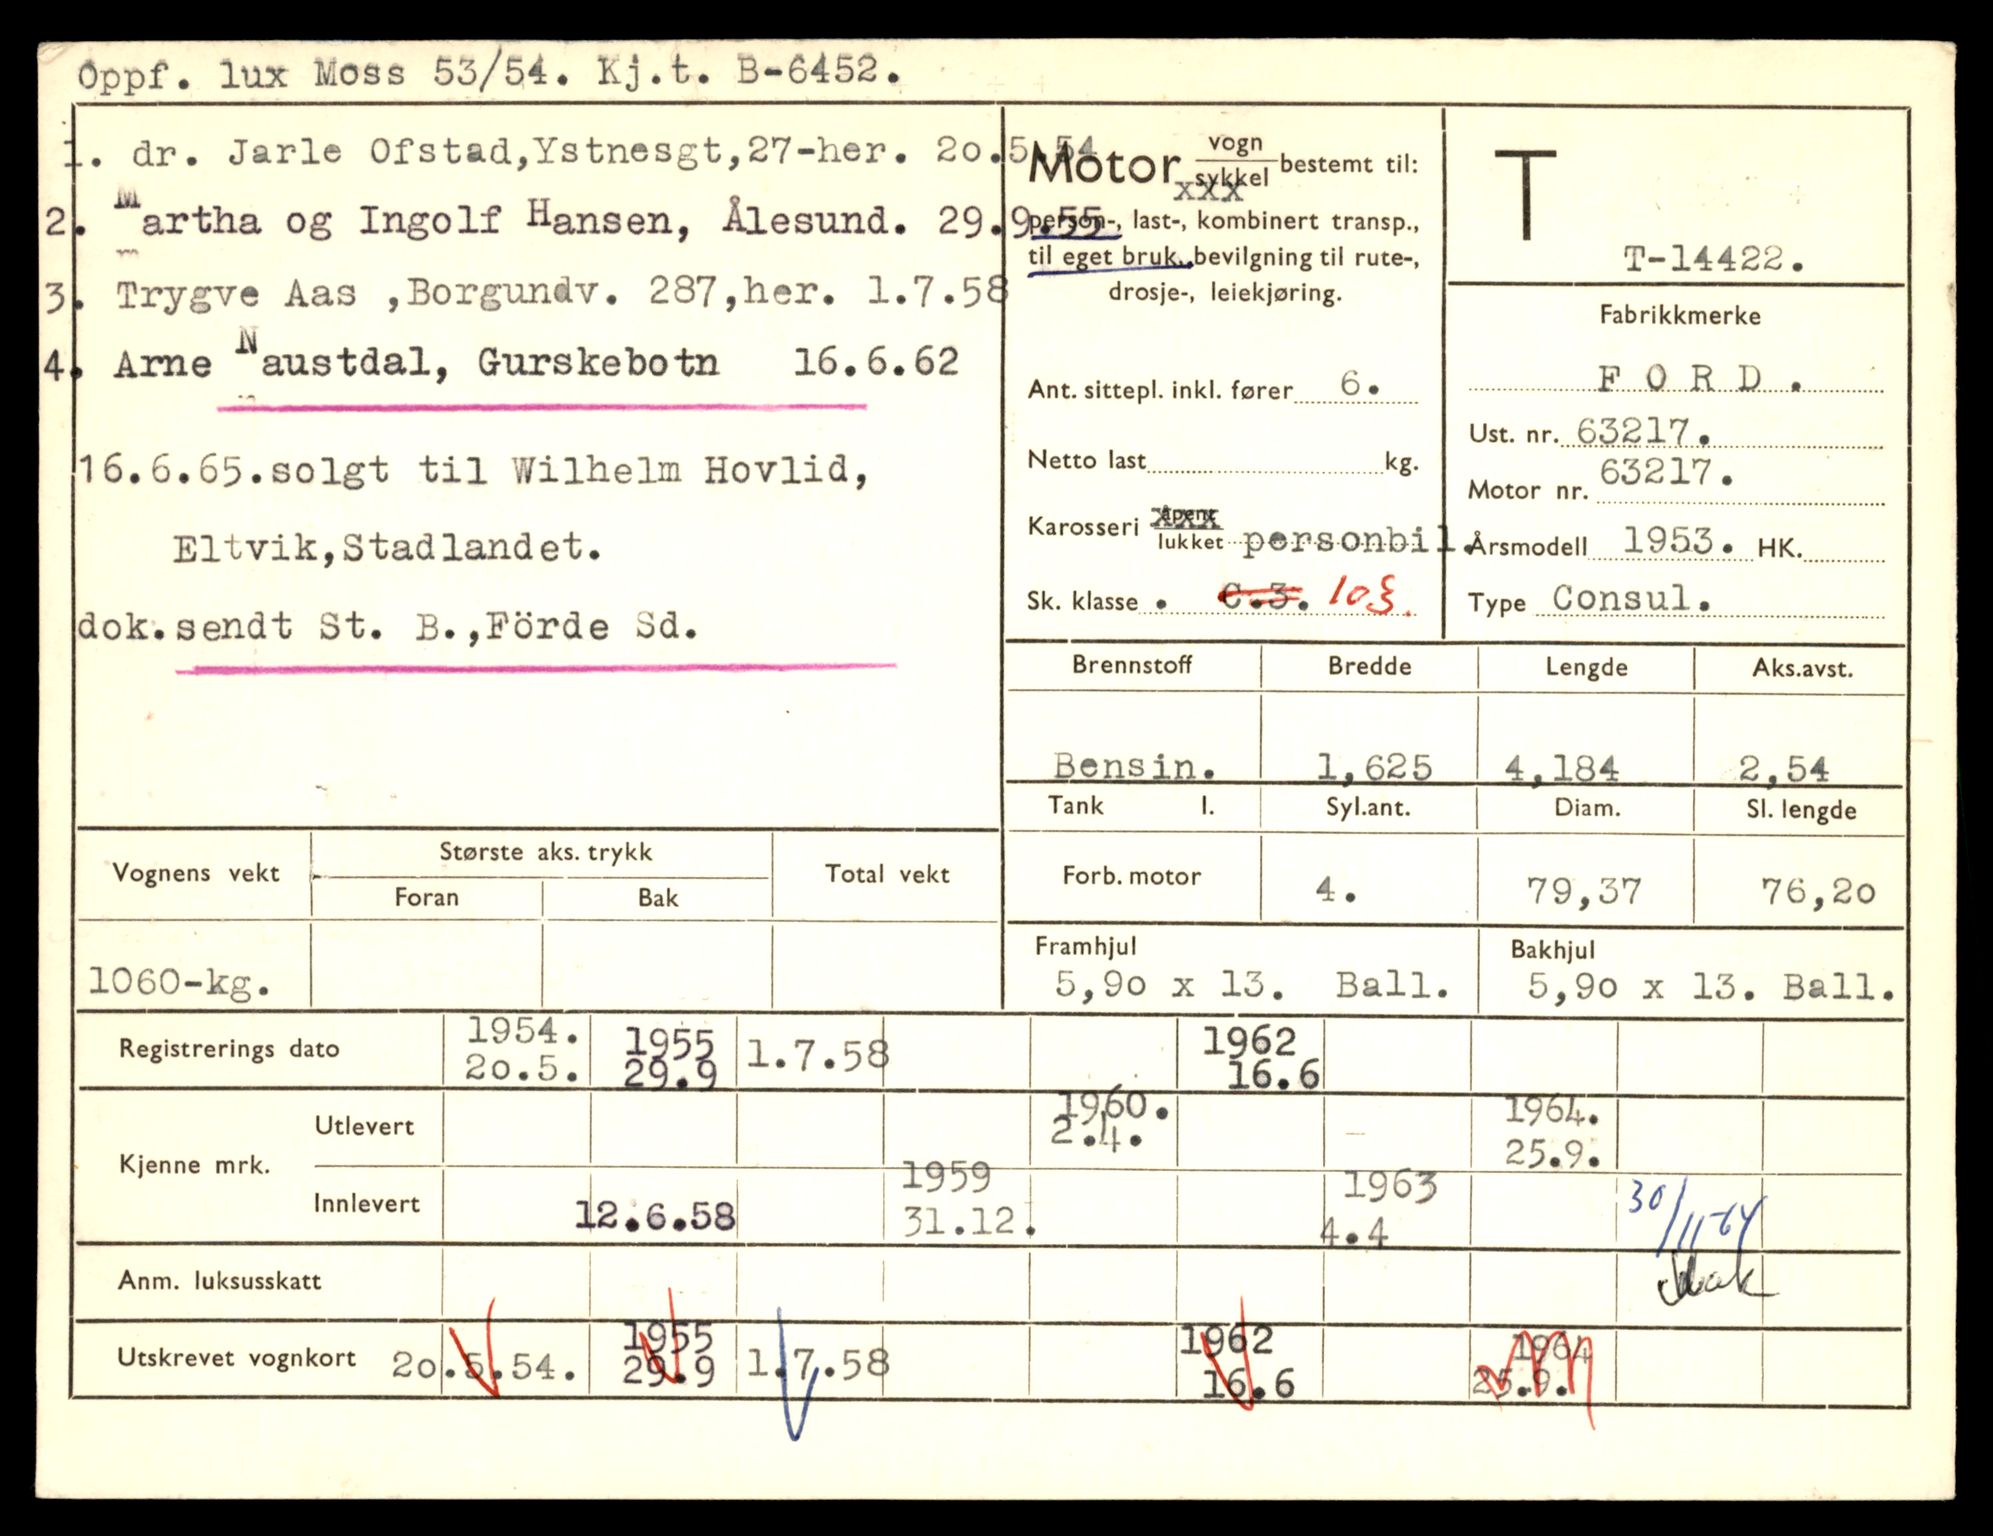 Oppf. lux Moss 53/54. Kj.t. B-6452.
1. dr. Jarle Ofstad,Ystnesgt,27-her. 20.5.54
2. Martha og Ingolf Hansen, Ålesund. 29.9.55
3. Trygve Aas ,Borgundv. 287,her. 1.7.58
4. Arne Naustdal, Gurskebotn 16.6.62
16.6.65.solgt til Wilhelm Hovlid,
Eltvik,Stadlandet.
dok.sendt St. B.,Förde Sd.
Motor vogn sykkel bestemt til:
xxx
person-, last-, kombinert transp.,
til eget bruk, bevilgning til rute-,
drosje-, leiekjøring.
Ant. sittepl. inkl. fører 6.
Netto last kg.
Karosseri åpent lukket personbil.
Sk. klasse . C.3. 10§.
T
T-14422.
Fabrikkmerke
FORD.
Ust. nr. 63217.
Motor nr. 63217.
Årsmodell 1953. HK.
Type Consul.
Brennstoff Bredde Lengde Aks.avst.
Bensin. 1,625 4,184 2,54
Tank l. Syl.ant. Diam. Sl. lengde
Forb. motor 4. 79,37 76,20
Vognens vekt Største aks. trykk Total vekt
Foran Bak
1060-kg.
Framhjul Bakhjul
5,90 x 13. Ball. 5,90 x 13. Ball.
Registrerings dato 1954. 20.5. 1955 29.9 1.7.58 1962 16.6
Kjenne mrk.
Utlevert 1960. 2.4. 1964. 25.9.
Innlevert 12.6.58 1959 31.12. 1963 4.4 30/11-64
Anm. luksusskatt
Utskrevet vognkort 20.5.54. 1955 29.9 1.7.58 1962 16.6 1964 25.9.